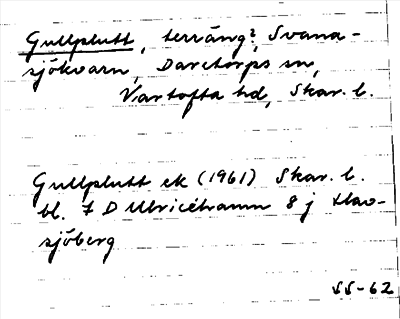 Gullplutt, terräng?, Svana-
sjökvarn, Daretorps sn,
Vartofta hd, Skar. l.
Gullplutt ek (1961) Skar. l.
bl. 7 D Ulricehamn 8 j Hav-
sjöberg
SS-62